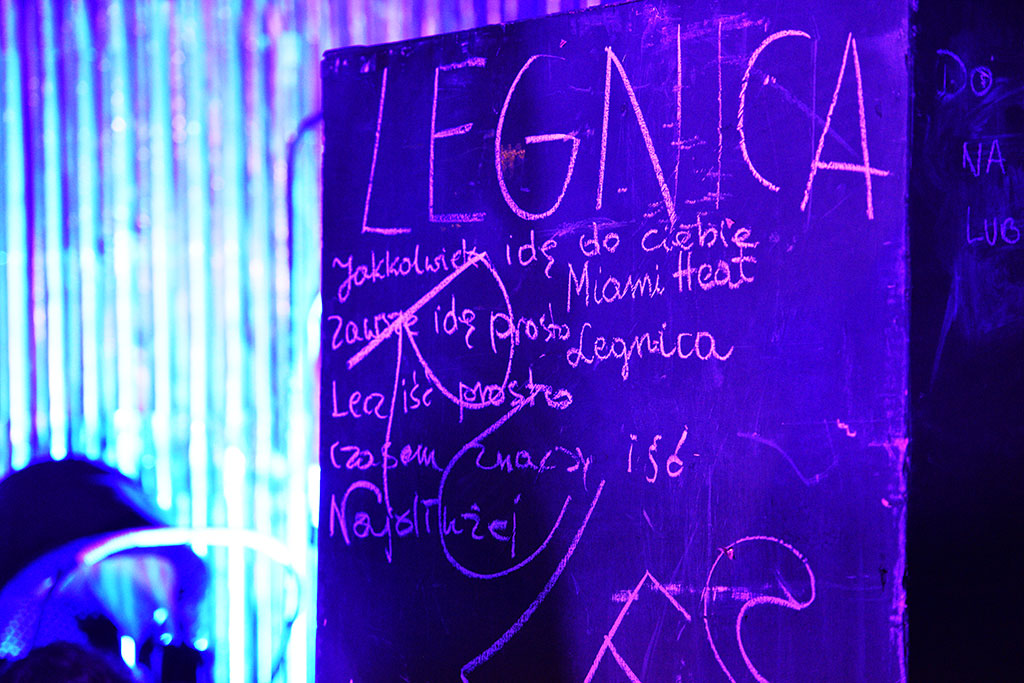 LEGNICA
Jakkolwiek idę do ciebie
Miami Heat
zawsze idę prosto
Legnica
Lecz iść prosto
czasem znaczy iść
Najdłużej
DO
NA
LUB